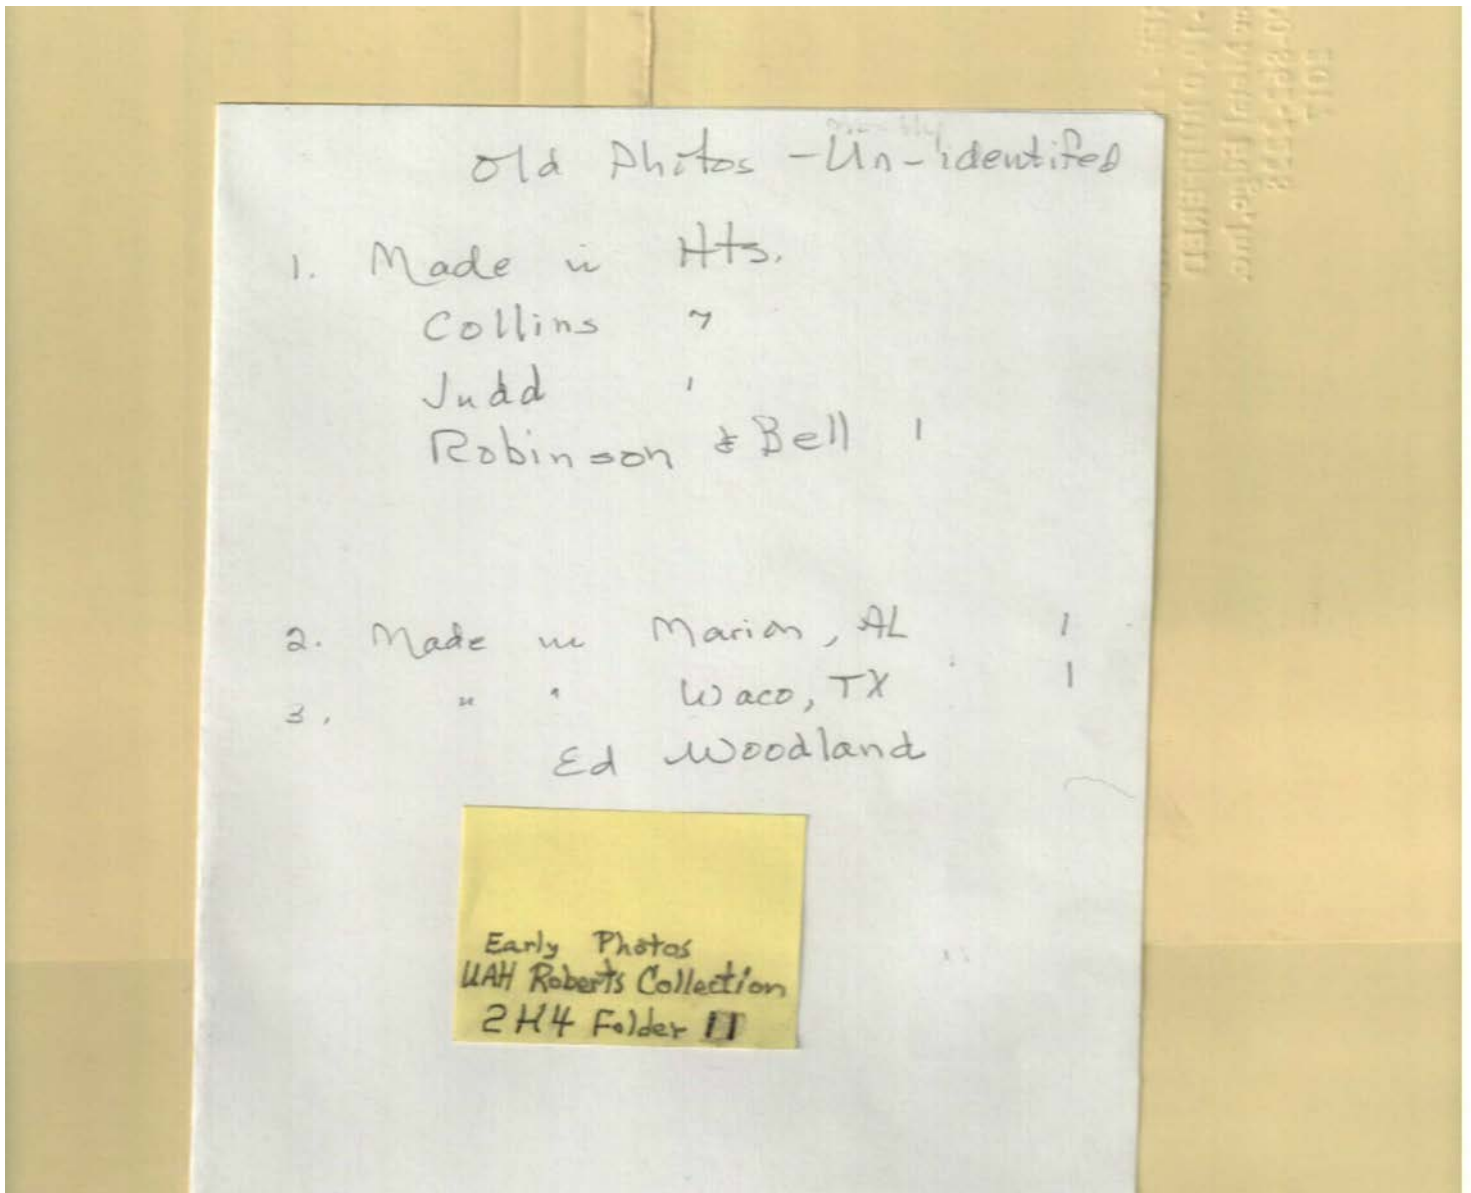 Old Photos - Un-identifed
1. Made in Hts.
Collins 7
Judd 1
Robinson & Bell 1
2. Made in Marion, AL 1
3. " " Waco, TX 1
Ed Woodland
Early Photos
UAH Roberts Collection
2H4 Folder 11